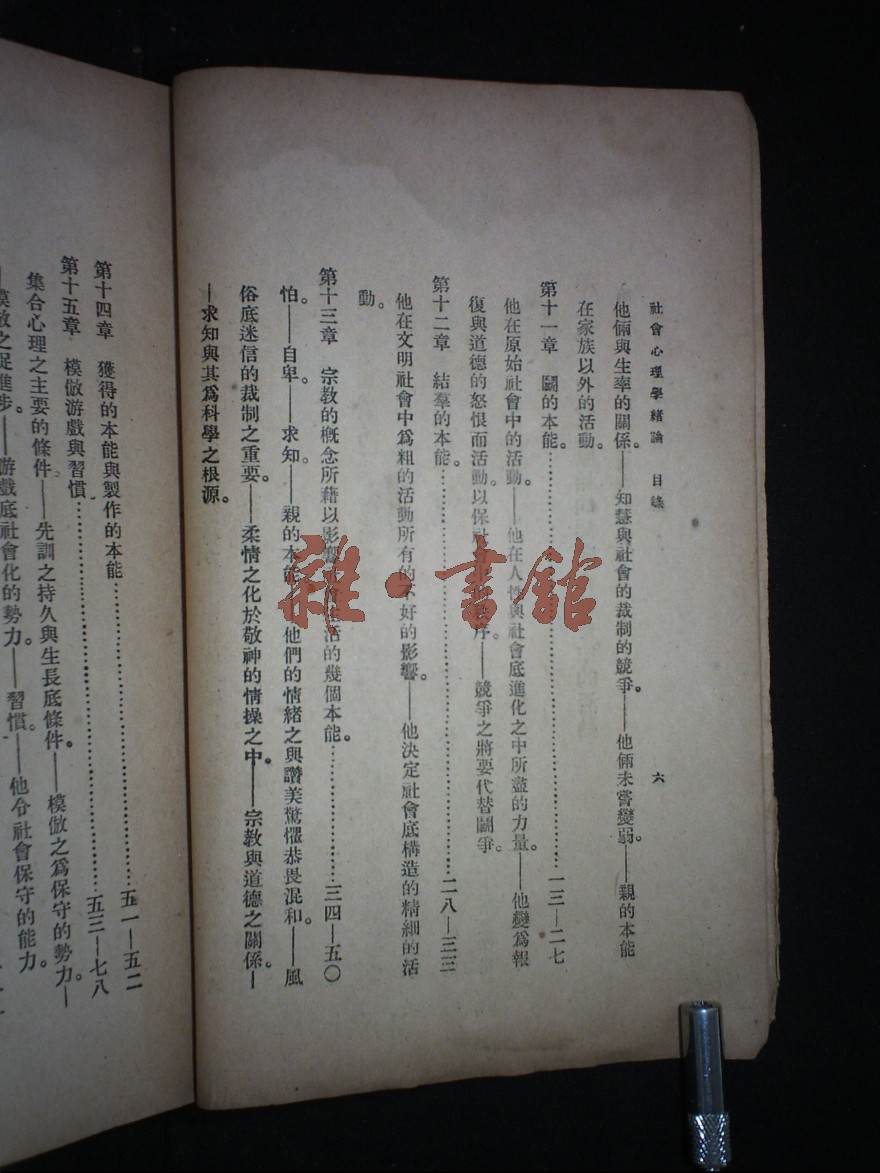 社會心理學緒論 目錄 六
他倆與生率的關係。——知慧與社會的裁制的競爭。——他倆未嘗變弱。——親的本能
在家族以外的活動。
第十一章 鬭的本能。……一三—二七
他在原始社會中的活動。——他在人性與社會底進化之中所盡的力量。——他變爲報
復與道德的怒恨而活動。以保社會秩序。——競爭之將要代替鬭爭。
第十二章 結羣的本能。……二八—三三
他在文明社會中爲粗的活動所有的不好的影響。——他決定社會底構造的精細的活
動。
第十三章 宗教的概念所藉以影響社會生活的幾個本能。……三四—五〇
怕。——自卑。——求知。——親的本能。他們的情緒之與讚美驚懼恭畏混和。——風
俗底迷信的裁制之重要。——柔情之化於敬神的情操之中。——宗教與道德之關係。—
—求知與其爲科學之根源。
第十四章 獲得的本能與製作的本能……五一—五二
第十五章 模倣游戲與習慣……五三—七八
集合心理之主要的條件——先訓之持久與生長底條件——模倣之爲保守的勢力。—
—模倣之促進步。——游戲底社會化的勢力——習慣。——他分社會保守的能力。
雜·書館